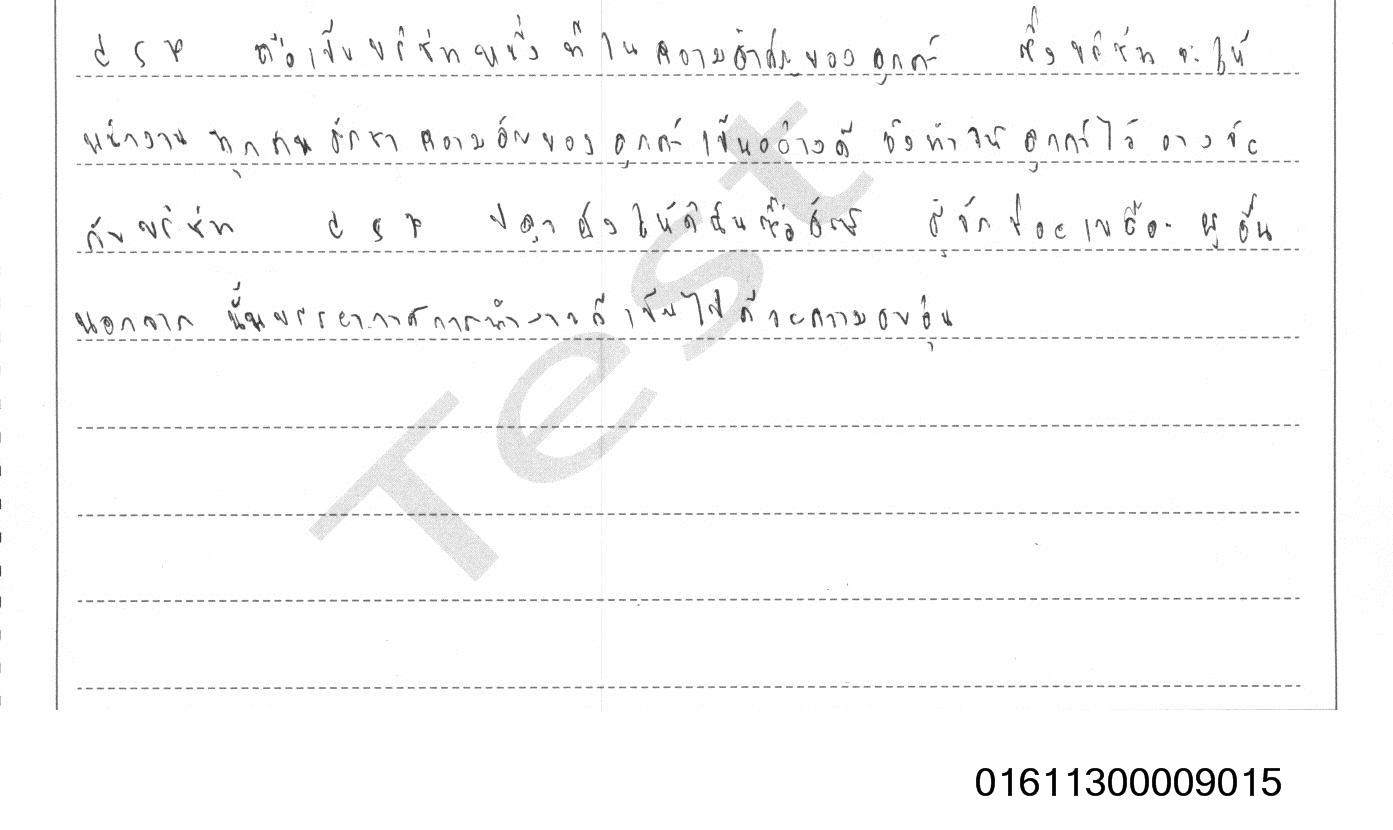 คือเป็นบริษัทหนึ่งที่ให้ความสำคัญของลูกค้า ซึ่งบริษัทจะให้
พนักงานทุกคนรักษาความลับของลูกค้าเป็นอย่างดี จึงทำให้ลูกค้าไว้วางใจ
กับบริษัท ให้ดิฉันซื่อสัตย์ รู้จัก ผู้อื่น
นอกจาก นั้นบรรยากาศการทำงานก็เป็นไปด้วยความอบอุ่น
Test
01611300009015